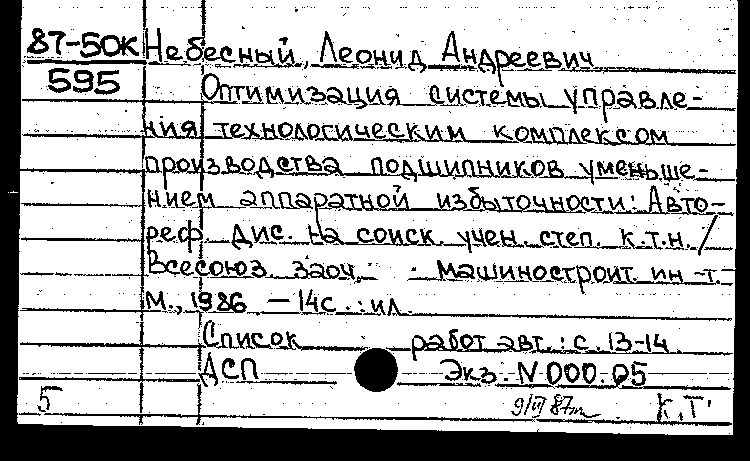 87-50к Небесный, Леонид Андреевич
595 Оптимизация системы управле-
ния технологическим комплексом
производства подшипников уменьше-
нием аппаратной избыточности: Авто-
реф. дис. на соиск. учен. степ. к.т.н. /
Всесоюз. заоч. машиностроит. ин-т.
М., 1986 — 14с.: ил.
Список работ авт.: с. 13-14.
ДСП Экз. N 000.05
5 К.Т.